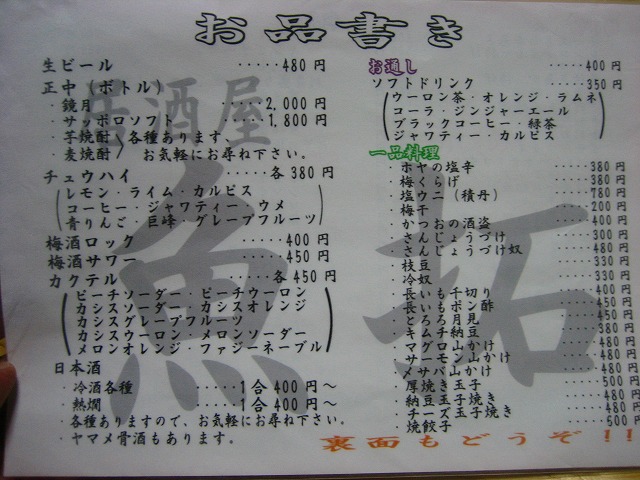 お品書き
生ビール ・・・・・480円
正中(ボトル)
・鏡月 ・・・・・2,000円
・サッポロソフト ・・・・1,800円
・芋焼酎〉各種あります。
・麦焼酎〉 お気軽にお尋ね下さい。
チュウハイ ・・・・・各380円
(レモン・ライム・カルピス
コーヒー・ジャワティー・ウメ
青りんご・巨峰・グレープフルーツ)
梅酒ロック ・・・・・400円
梅酒サワー ・・・・・450円
カクテル ・・・・・各450円
(ピーチソーダー・ピーチウーロン
カシスソーダー・カシスオレンジ
カシスグレープフルーツ
カシスウーロン・メロンソーダー
メロンオレンジ・ファジーネーブル)
日本酒
・冷酒各種 ・・・・・1合400円~
・熱燗 ・・・・・1合400円~
・各種ありますので、お気軽にお尋ね下さい。
・ヤマメ骨酒もあります。
お通し ・・・・・400円
ソフトドリンク ・・・・・350円
(ウーロン茶・オレンジ・ラムネ
コーラ・ジンジャーエール
ブラックコーヒー・緑茶
ジャワティー・カルピス)
一品料理
・ホヤの塩辛 ・・・・・380円
・梅くらげ ・・・・・380円
・塩ウニ(積丹) ・・・・・780円
・梅干 ・・・・・200円
・かつおの酒盗 ・・・・・400円
・さんじょうづけ ・・・・・300円
・さんじょうづけ奴 ・・・・・480円
・枝豆 ・・・・・330円
・冷奴 ・・・・・330円
・長いも千切り ・・・・・400円
・長いもポン酢 ・・・・・450円
・とろろ月見 ・・・・・450円
・キムチ納豆 ・・・・・380円
・マグロ山かけ ・・・・・480円
・サーモン山かけ ・・・・・480円
・メサバ山かけ ・・・・・480円
・厚焼き玉子 ・・・・・500円
・納豆玉子焼き ・・・・・480円
・チーズ玉子焼き ・・・・・480円
・焼餃子 ・・・・・500円
裏面もどうぞ!!
居酒屋
魚拓